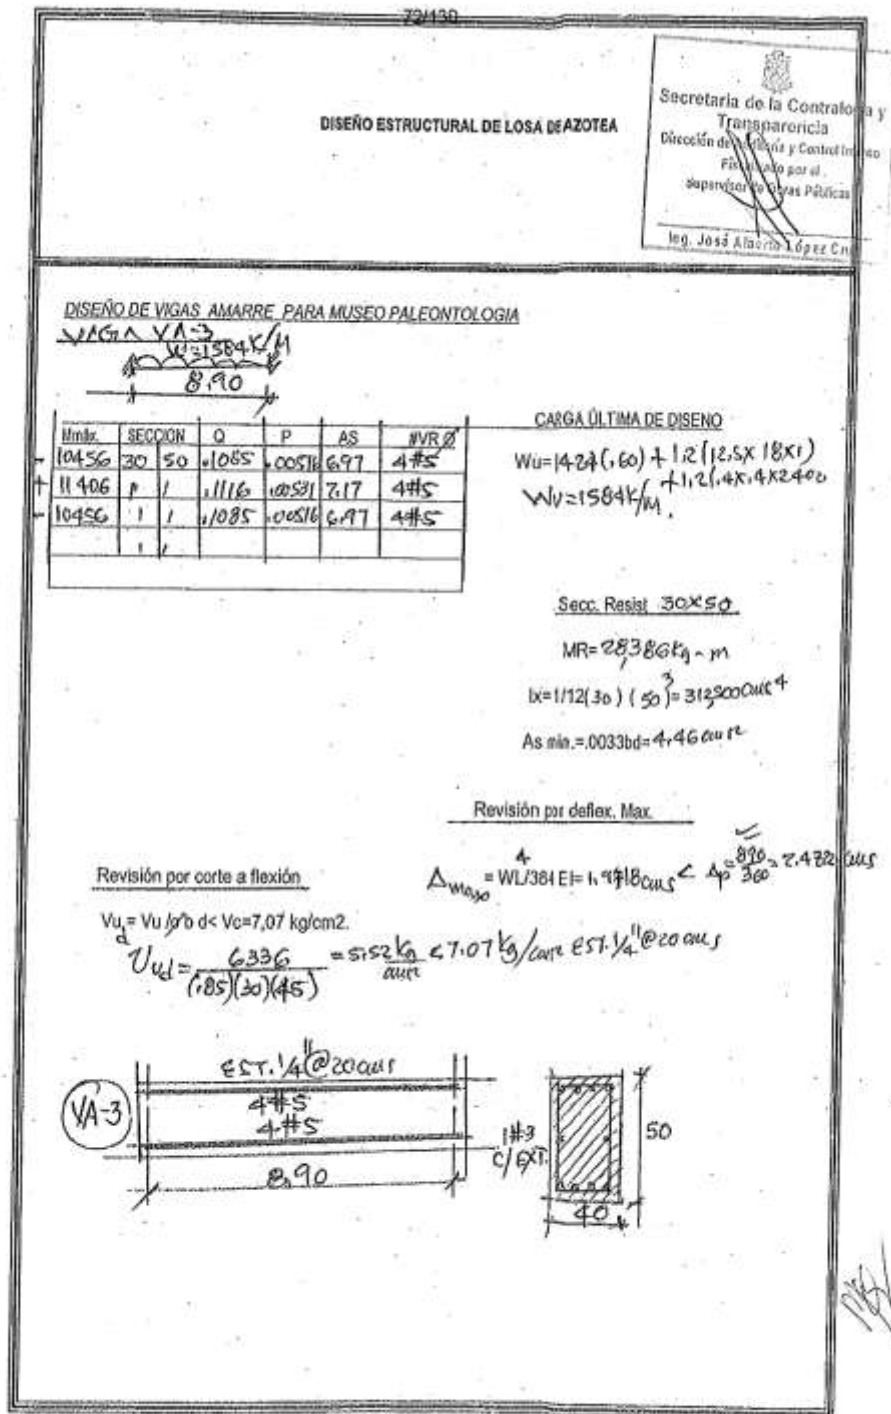 72/130
DISEÑO ESTRUCTURAL DE LOSA DE AZOTEA
Secretaría de la Contraloría y
Transparencia
Dirección de y Control Interno
Fiscalizado por el
Supervisor de Obras Públicas
Ing. José Alberto López Cruz
DISEÑO DE VIGAS AMARRE PARA MUSEO PALEONTOLOGIA
VIGA VA-3
W=1584K/M
8.90
Mmáx. SECCION Q P AS #VR Ø
- 10456 30 50 .1085 .00516 6.97 4#5
+ 11406 .1116 .00531 7.17 4#5
- 10456 .1085 .00516 6.97 4#5
CARGA ÚLTIMA DE DISEÑO
Wu=1427(.60) + 1.2(12.5X18X1)
+1.2(.4X.4X2400
WU=1584K/M.
Secc. Resist 30X50
MR=28,386Kg-m
Ix=1/12(30)(50)³=312,500cms⁴
As min.=.0033bd=4.46cm²
Revisión por deflex. Max.
Δmaxo = WL⁴/384 EI= < Δp=890/360=2.472cms
Revisión por corte a flexión
Vud= Vu /ø b d< Vc=7,07 kg/cm2.
Uud= 6336/(.85)(30)(45) =5.52kg/cm² <7.07kg/cm² EST.1/4"@20cms
EST.1/4"@20cms
4#5
4#5
VA-3
8.90
1#3
C/EXT.
50
40